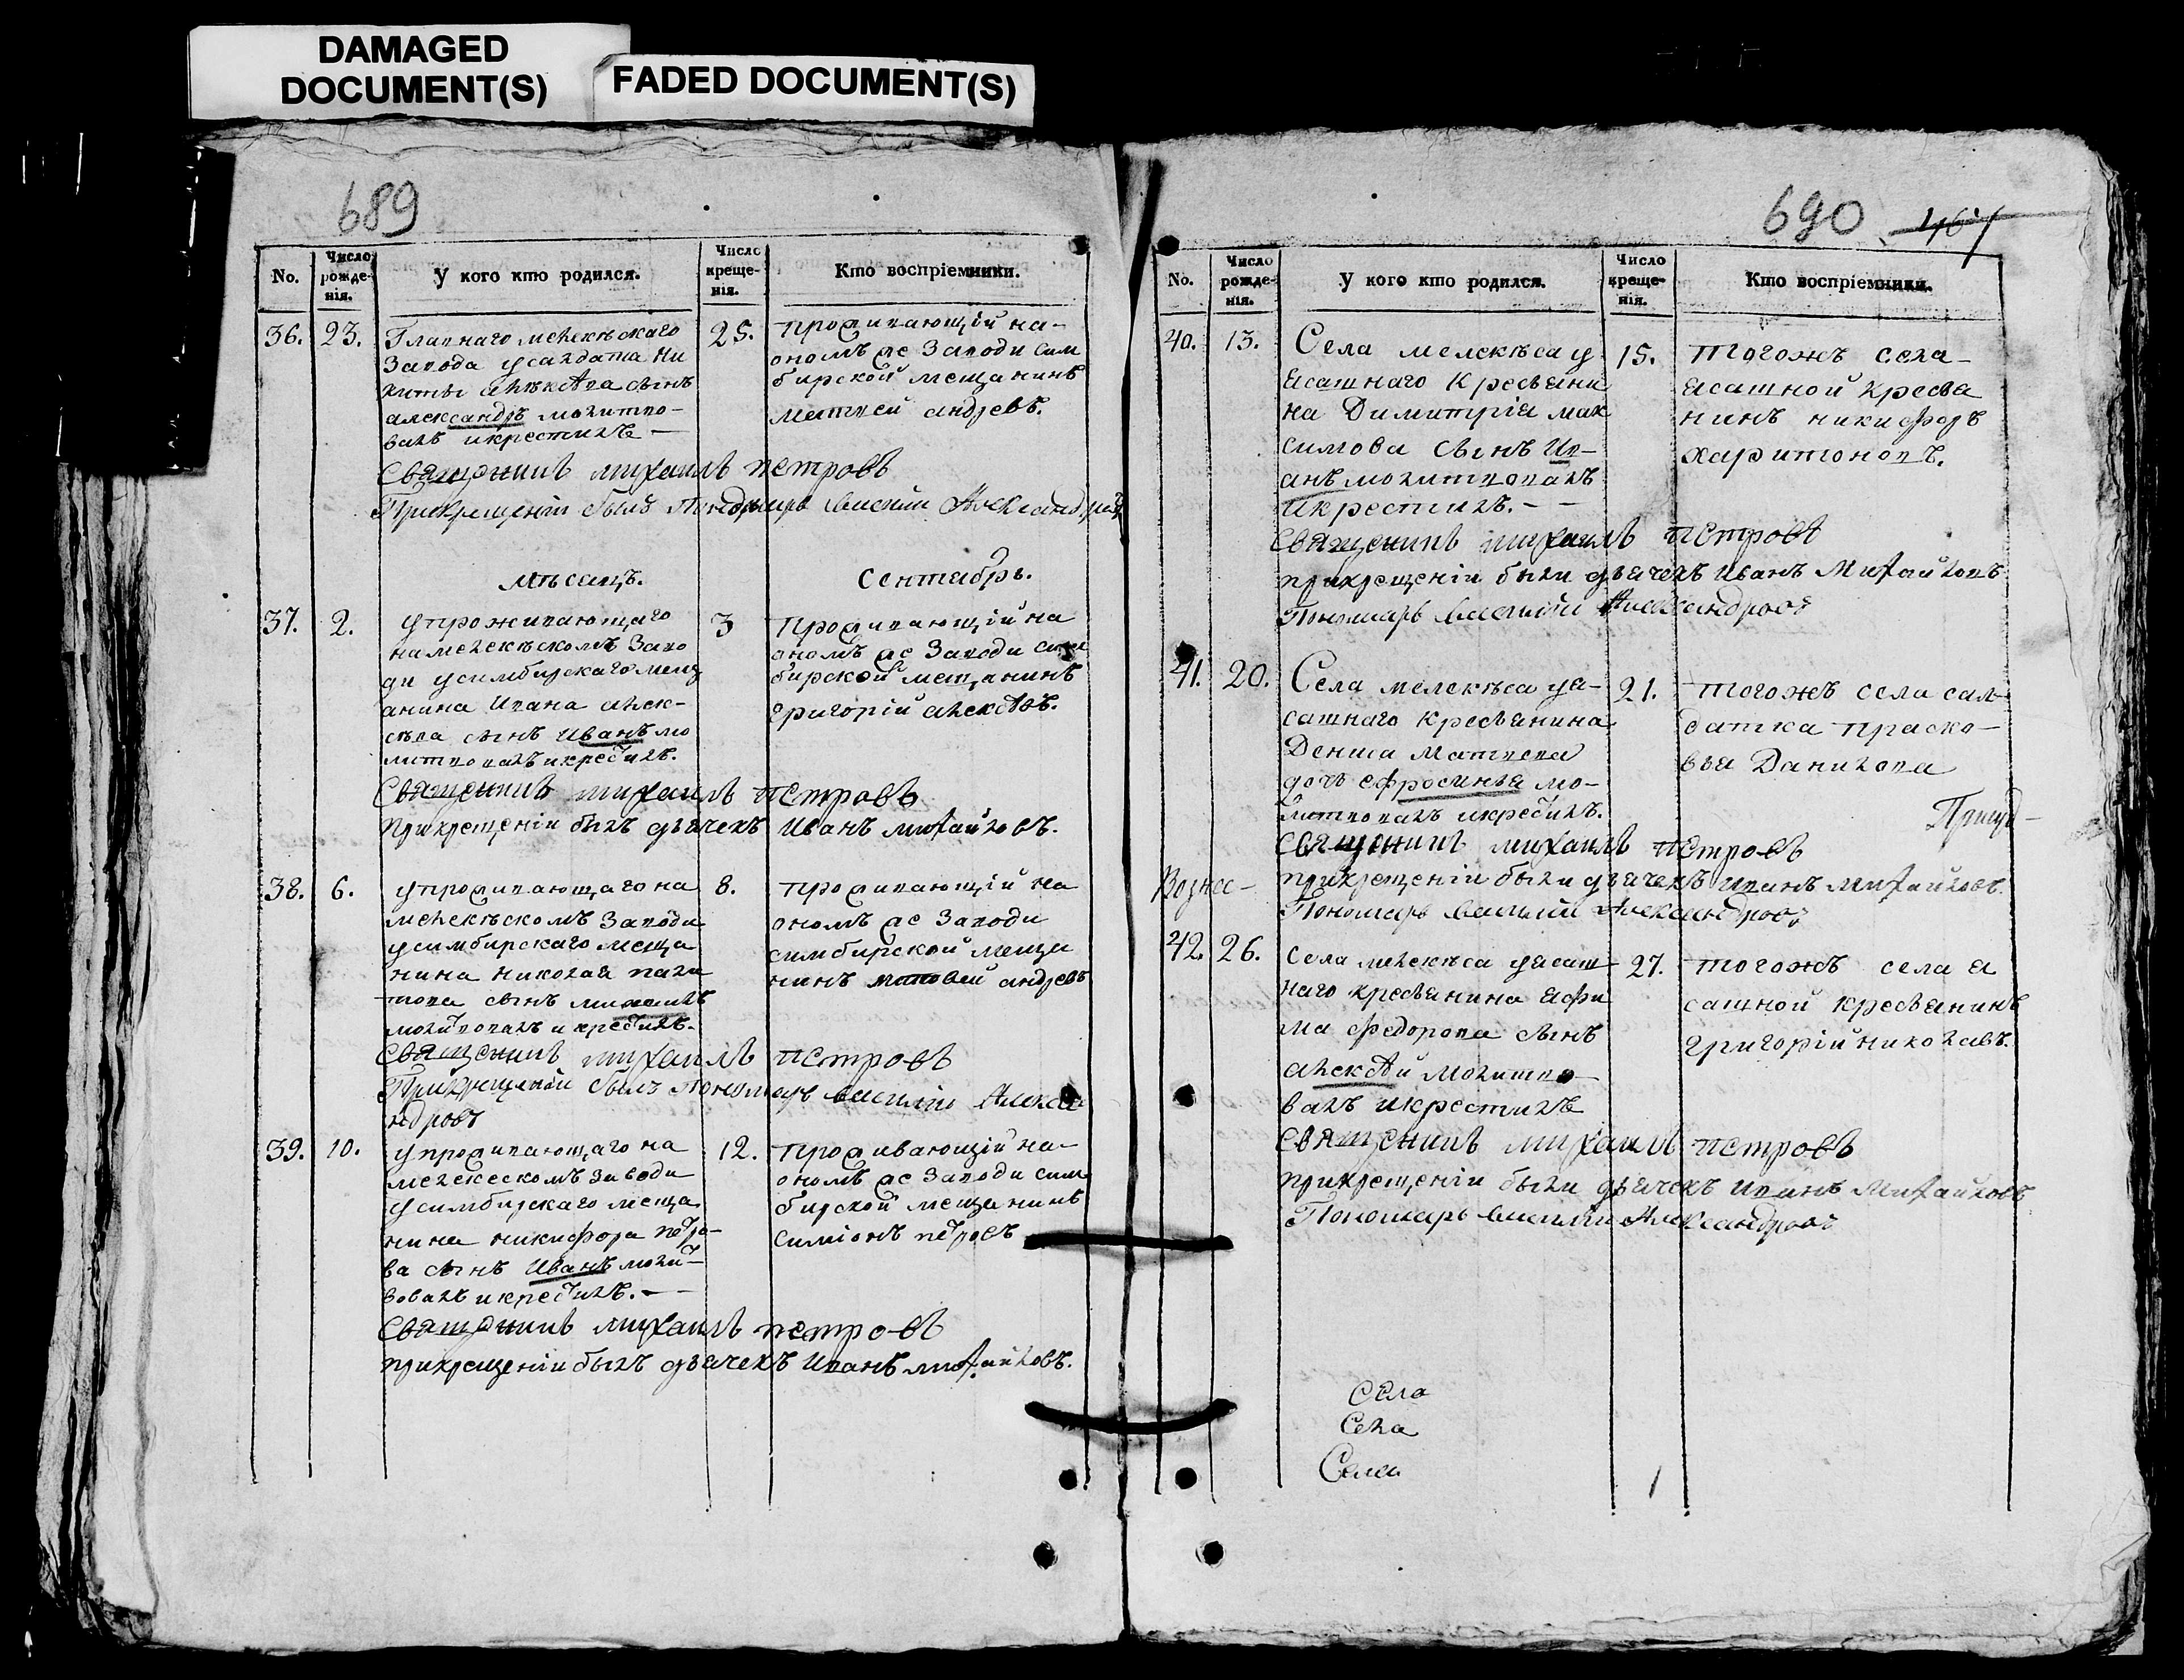 DAMAGED
DOCUMENT(S)
FADED DOCUMENT(S)
689
No.
Число рожде- нія.
У кого кто родился.
Число креще- нія.
Кто воспріемники.
36. 23.
Главнаго мелекѣскаго
Завода у салдата Ни
киты алѣкѣева сынъ
александръ молитво-
валъ икрестилъ —
25.
проживающій на-
ономъ же Заводи сим
бирской мещанинъ
матвей андревъ.
Священникъ михаилъ петровъ
Прикрещеніи былъ Пономарь Василий Александровъ
мѣсецъ. Сентябрь.
37. 2.
упроживающаго
намелекѣскомъ Заво
ди усимбирскаго мещ
анина Ивана алек-
сѣва сынъ Иванъ мо
литвовалъ икрестилъ.
3
Проживающій на
ономъ же Заводи сим
бирской мещанинъ
григорій алексѣвъ.
Священникъ михаилъ петровъ
Прикрещеніи былъ дьячекъ Иванъ михайловъ.
38. 6.
упроживающаго на
мелекѣскомъ Заводи
усимбирскаго меща
нина николая
сынъ михаилъ
молитвовалъ и крестилъ.
8.
проживающій на
ономъ же Заводи
симбирской меща
нинъ матвей андревъ
Священникъ михаилъ петровъ
Прикрещеніи былъ Пономарь Василий Алекса
ндровъ
39. 10.
упроживающаго на
мелекескомъ Заводи
усимбирскаго меща
нина никифора петро-
ва сынъ Иванъ молит-
вовалъ икрестилъ. —
12.
проживающій на-
ономъ же Заводи сим
бирской мещанинъ
симіонъ петровъ
Священникъ михаилъ петровъ
прикрещеніи былъ дьячекъ Иванъ михайловъ.
690 467
No.
Число рожде- нія.
У кого кто родился.
Число креще- нія.
Кто воспріемники.
40. 13.
Села мелекѣса у
ясашнаго Кресьяни
на Димитрія мак
симова сынъ Ив-
анъ молитвовалъ
икрестилъ. — —
15.
тогожъ села-
ясашной Кресья
нинъ никифоръ
харитоновъ.
Священникъ михаилъ петровъ
прикрещеніи были дьячекъ Иванъ Михайловъ
Пономарь Василий Александровъ
41. 20.
Села мелекѣса уя-
сашнаго Кресьянина
Дениса Матвеева
дочь ефросинья мо-
литвовалъ икрестилъ.
21.
тогожъ села сал-
датка праско-
вья Данилова
Священникъ михаилъ петровъ
Вознес-
прикрещеніи были дьячекъ Иванъ Михайловъ.
Пономарь Василий Александровъ
42. 26.
села мелекѣса уясаш-
наго кресьянина яфи
ма федорова сынъ
алексѣй молитво-
валъ икрестилъ
27.
тогожъ села я
сашной кресьянинъ
григорій николавъ.
Священникъ михаилъ петровъ
прикрещеніи были дьячекъ Иванъ Михайловъ
Пономарь Василий Александровъ
Села
Села
Села